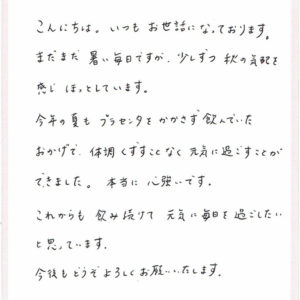 こんにちは。いつもお世話になっております。
まだまだ暑い毎日ですが、少しずつ秋の気配を
感じほっとしています。
今年の夏もプラセンタをかかさず飲んでいた
おかげで、体調くずすことなく元気に過ごすことが
できました。本当に心強いです。
これからも飲み続けて元気に毎日を過ごしたい
と思っています。
今後もどうぞよろしくお願いいたします。